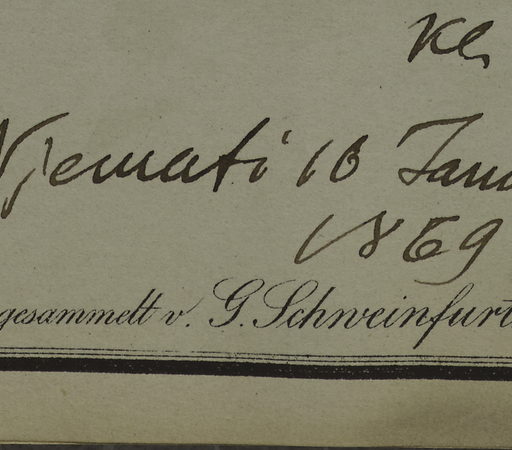 Kl
Njemati 16 Janu
1869
gesammelt v. G. Schweinfurt